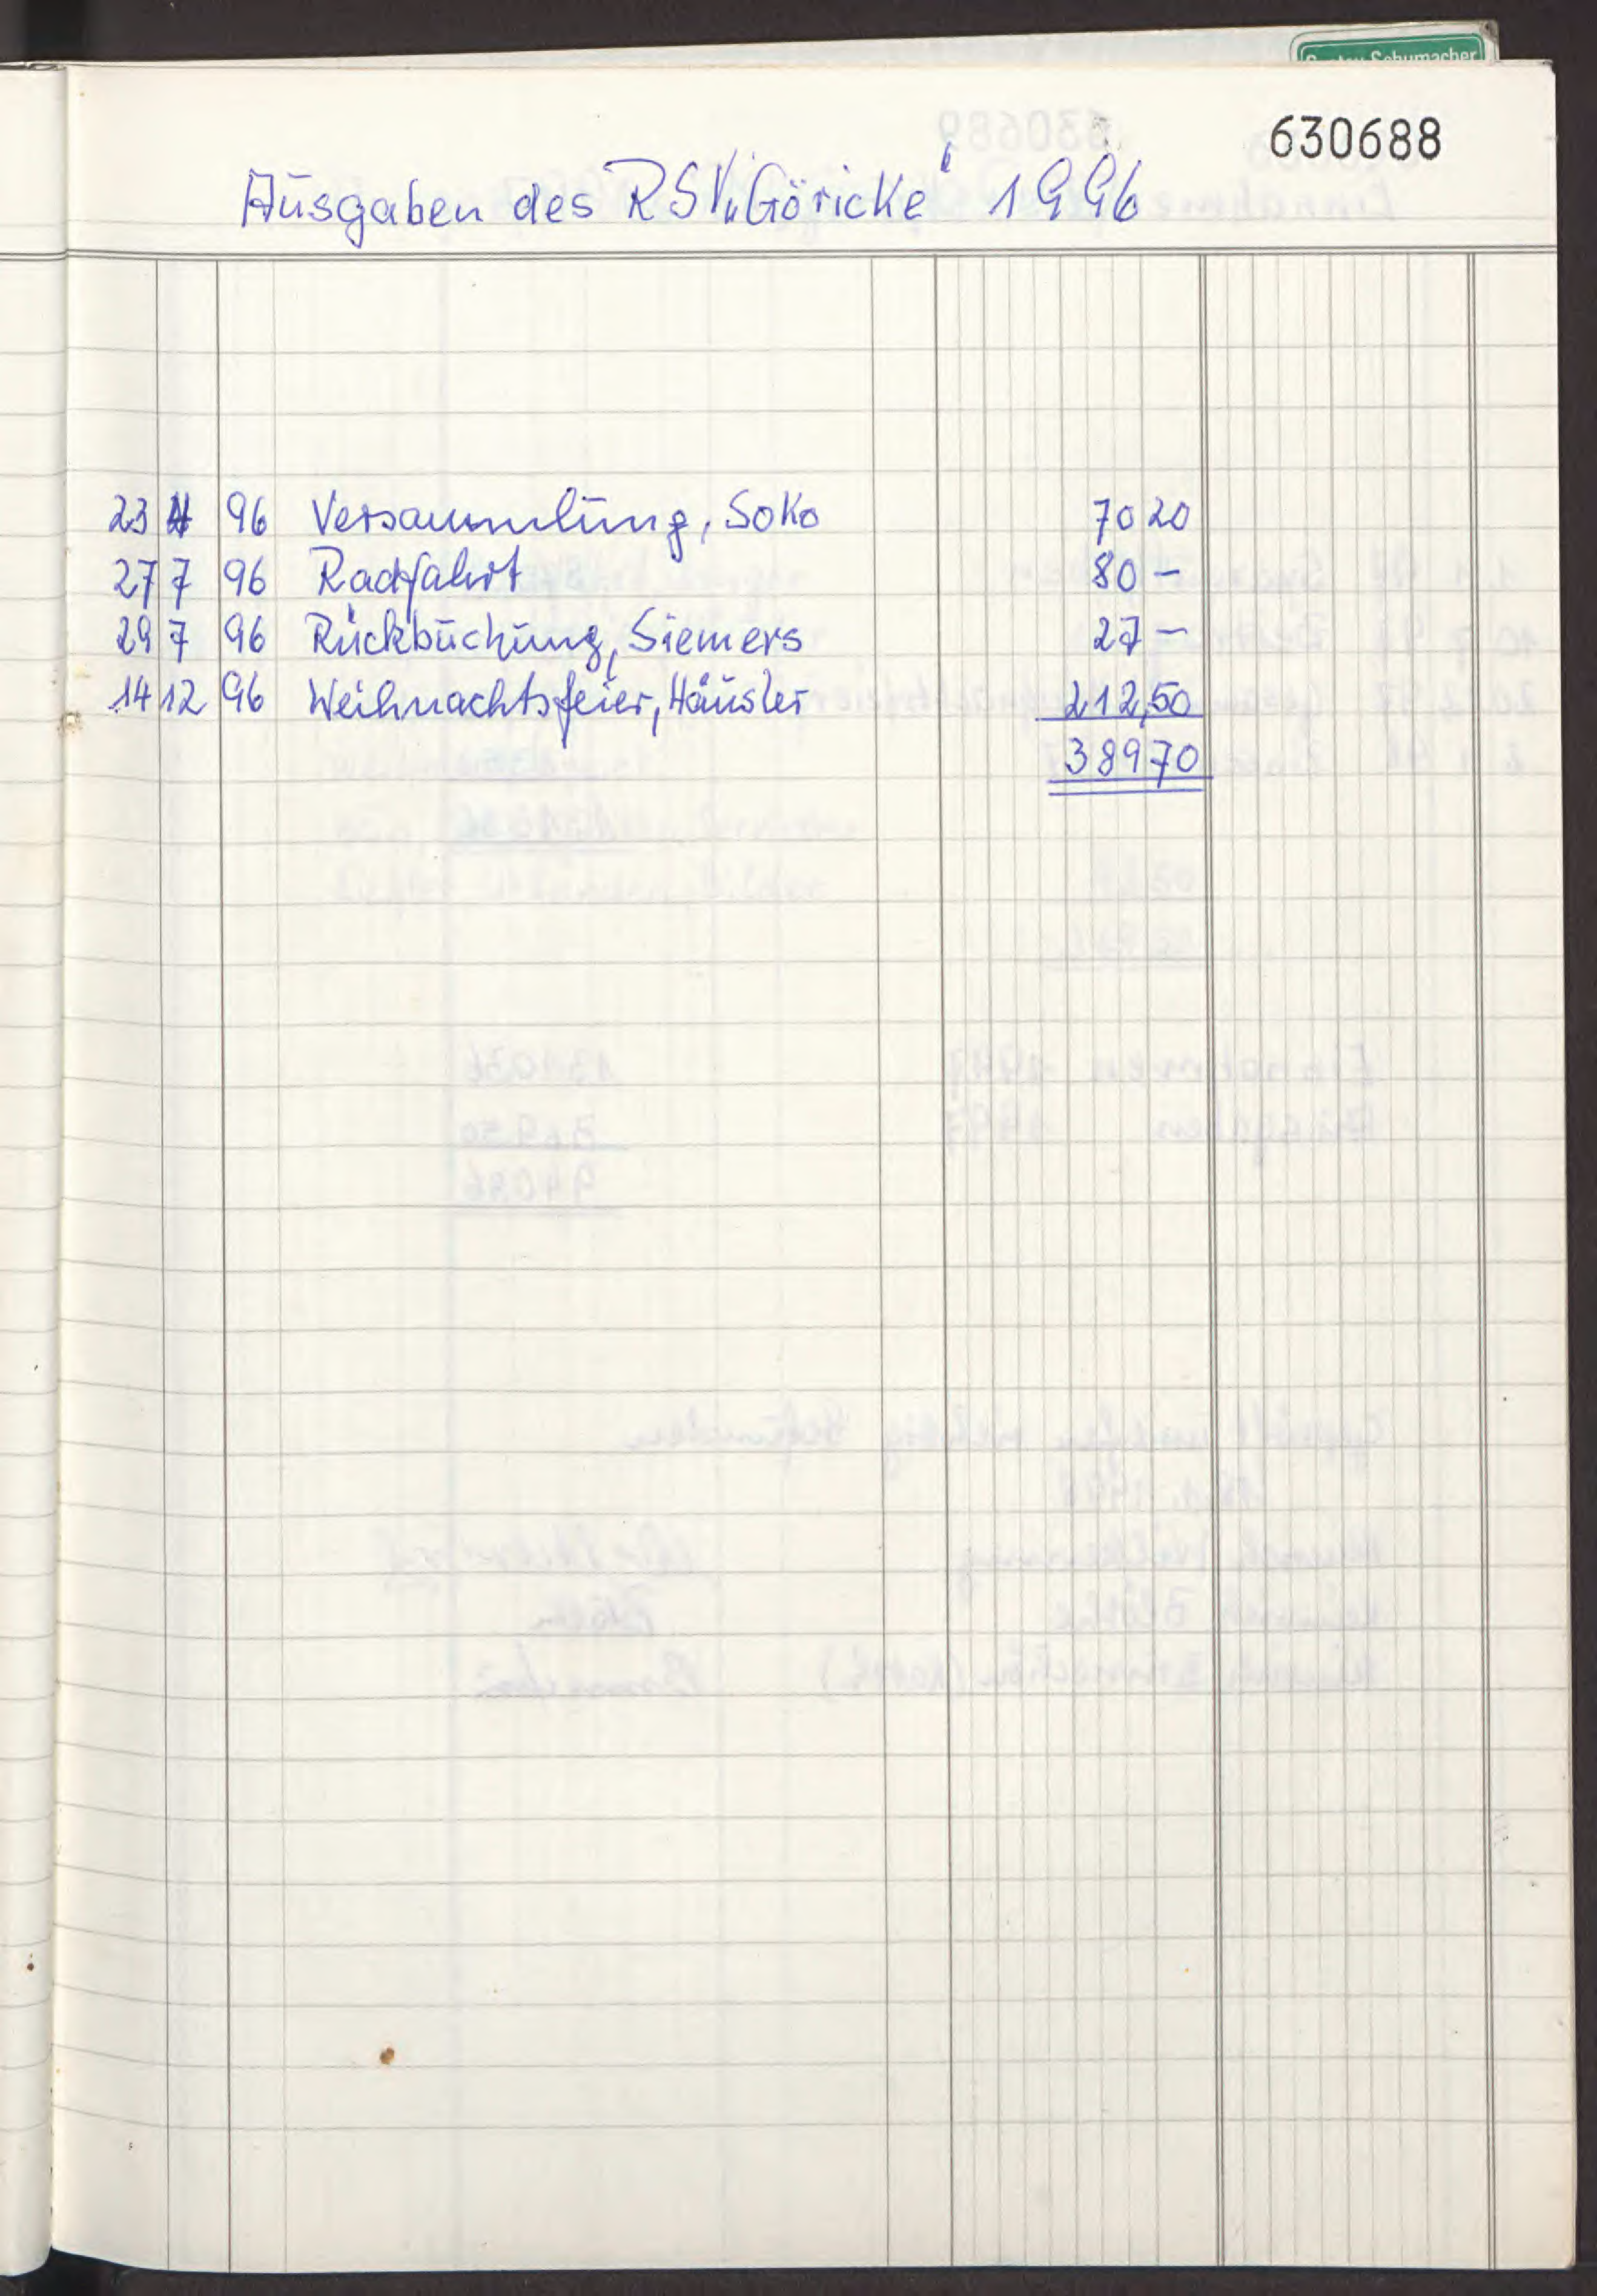 Gustav Schumacher
630688
Ausgaben des RSV „Göricke“ 1996
23 4 96 Versammlung, SoKo 70 20
27 7 96 Radfahrt 80 –
29 7 96 Rückbuchung, Siemers 27 –
14 12 96 Weihnachtsfeier, Häusler 212,50
389 70